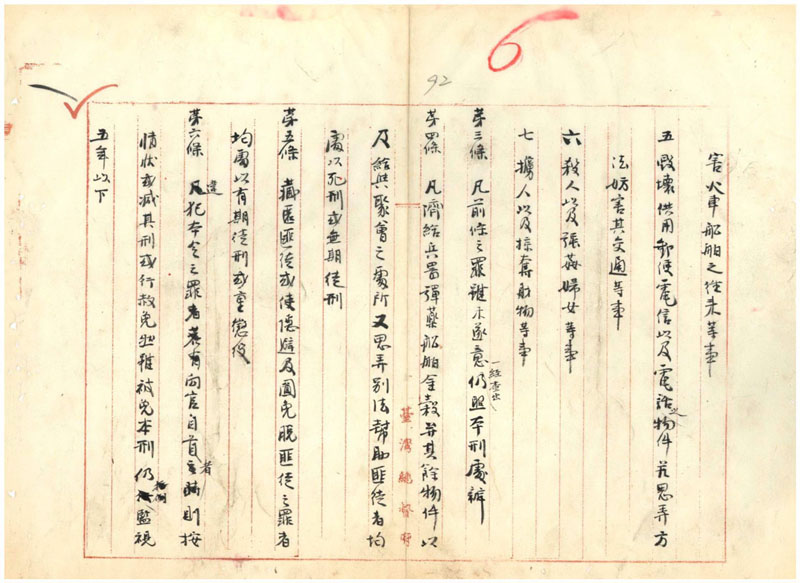 6
92
害火車船舶之往來等事
五 毀壞供用郵便電信以及電話之物件若思弄方
法妨害其交通等事
六 殺人以及強姦婦女等事
七 擄人以及掠奪財物等事
第三條 凡前條之罪雖未遂意一經查出仍照本刑處辦
第四條 凡濟給兵器彈藥船舶金穀并其餘物件以
及給與聚會之處所又思弄別法幫助匪徒者均
處以死刑或無期徒刑
第五條 藏匿匪徒或使隱避及圖免脫匪徒之罪者
均處以有期徒刑或重懲役
第六條 凡違犯本令之罪者若有向官自首者則按
情狀或減其刑或行赦免如雖被免本刑仍監視
五年以下
臺灣總督府